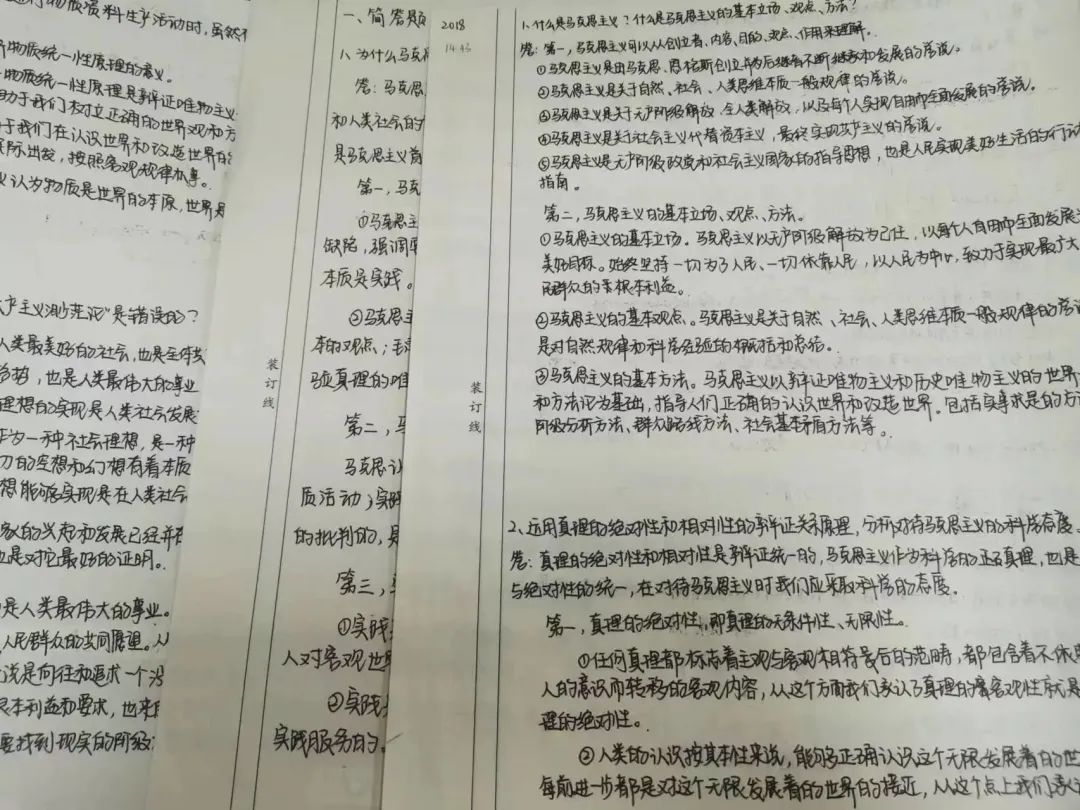 物质资料生产活动时,虽然
物质统一性原理的意义。
物质统一性原理是辩证唯物主义
助于我们树立正确的世界观和方
于我们在认识世界和改造世界的
实际出发,按照客观规律办事。
认为物质是世界的本原,世界是
产主义渺茫论"是错误的?
人类最美好的社会,也是全体
势,也是人类最伟大的事业
理想的实现是人类社会发展
作为一种社会理想,是一种
切的空想和幻想有着本质
想能够实现是在人类社会
的兴起和发展已经并在
是对它最好的证明。
是人类最伟大的事业。
人民群众的共同愿望。
说是向往和追求一个没
本利益和要求,也来
要找到现实的阶级
装订线
一、简答题
1、为什么马克
答:马克思
和人类社会的
是马克思主义首
第一,马克
①马克思主
缺陷,强调
本质是实践。
②马克思主
本的观点;毛
验真理的唯
第二,马
马克思认
质活动;实践
的批判的,是
第三,
①实践
人对客观世
②实践
实践服务的。
装订线
2018
14.43
1、什么是马克思主义?什么是马克思主义的基本立场、观点、方法?
答:第一,马克思主义可以从创立者、内容、目的、观点、作用来理解。
①马克思主义是由马克思、恩格斯创立并为后继者不断继承和发展的学说。
②马克思主义是关于自然、社会、人类思维本质一般规律的学说。
③马克思主义是关于无产阶级解放、全人类解放,以及每个人实现自由而全面发展的学说。
④马克思主义是关于社会主义代替资本主义,最终实现共产主义的学说。
⑤马克思主义是无产阶级政党和社会主义国家的指导思想,也是人民实现美好生活的行动
指南。
第二,马克思主义的基本立场、观点、方法。
①马克思主义的基本立场。马克思主义以无产阶级解放为己任,以每个人自由而全面发展
美好目标。始终坚持一切为了人民、一切依靠人民,以人民为中心,致力于实现最广大
民群众的根本利益。
②马克思主义的基本观点。马克思主义是关于自然、社会、人类思维本质一般规律的学说
是对自然规律和科学经验的概括和总结。
③马克思主义的基本方法。马克思主义以辩证唯物主义和历史唯物主义的世界
和方法论为基础,指导人们正确的认识世界和改造世界。包括实事求是的方法
阶级分析方法、群众路线方法、社会基本矛盾方法等。
2、运用真理的绝对性和相对性的辩证关系原理,分析对待马克思主义的科学态度。
答:真理的绝对性和相对性是辩证统一的,马克思主义作为科学的真理,也是
与绝对性的统一,在对待马克思主义时我们应采取科学的态度。
第一,真理的绝对性,即真理的无条件性、无限性。
①任何真理都标志着主观与客观相符最后的范畴,都包含着不依
人的意识而转移的客观内容,从这个方面我们承认了真理的客观性就是
理的绝对性。
②人类的认识按其本性来说,能够正确认识这个无限发展着的世
每前进一步都是对这个无限发展着的世界的接近,从这个点上我们承认